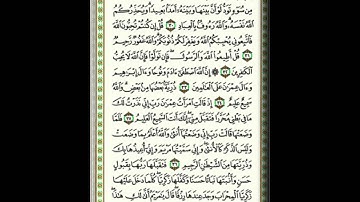 مِن سُوٓءٍ تَوَدُّ لَوْ أَنَّ بَيْنَهَا وَبَيْنَهُۥٓ أَمَدًۢا بَعِيدًا ۗ وَيُحَذِّرُكُمُ
ٱللَّهُ نَفْسَهُۥ ۗ وَٱللَّهُ رَءُوفٌۢ بِٱلْعِبَادِ ٣٠ قُلْ إِن كُنتُمْ تُحِبُّونَ ٱللَّهَ
فَٱتَّبِعُونِى يُحْبِبْكُمُ ٱللَّهُ وَيَغْفِرْ لَكُمْ ذُنُوبَكُمْ ۗ وَٱللَّهُ غَفُورٌ رَّحِيمٌ
٣١ قُلْ أَطِيعُوا۟ ٱللَّهَ وَٱلرَّسُولَ ۖ فَإِن تَوَلَّوْا۟ فَإِنَّ ٱللَّهَ لَا يُحِبُّ
ٱلْكَٰفِرِينَ ٣٢ ۞ إِنَّ ٱللَّهَ ٱصْطَفَىٰٓ ءَادَمَ وَنُوحًا وَءَالَ إِبْرَٰهِيمَ
وَءَالَ عِمْرَٰنَ عَلَى ٱلْعَٰلَمِينَ ٣٣ ذُرِّيَّةًۢ بَعْضُهَا مِنۢ بَعْضٍ ۗ وَٱللَّهُ
سَمِيعٌ عَلِيمٌ ٣٤ إِذْ قَالَتِ ٱمْرَأَتُ عِمْرَٰنَ رَبِّ إِنِّى نَذَرْتُ لَكَ
مَا فِى بَطْنِى مُحَرَّرًا فَتَقَبَّلْ مِنِّىٓ ۖ إِنَّكَ أَنتَ ٱلسَّمِيعُ ٱلْعَلِيمُ ٣٥ فَلَمَّا
وَضَعَتْهَا قَالَتْ رَبِّ إِنِّى وَضَعْتُهَآ أُنثَىٰ وَٱللَّهُ أَعْلَمُ بِمَا وَضَعَتْ
وَلَيْسَ ٱلذَّكَرُ كَٱلْأُنثَىٰ ۖ وَإِنِّى سَمَّيْتُهَا مَرْيَمَ وَإِنِّىٓ أُعِيذُهَا بِكَ
وَذُرِّيَّتَهَا مِنَ ٱلشَّيْطَٰنِ ٱلرَّجِيمِ ٣٦ فَتَقَبَّلَهَا رَبُّهَا بِقَبُولٍ
حَسَنٍ وَأَنۢبَتَهَا نَبَاتًا حَسَنًا وَكَفَّلَهَا زَكَرِيَّا ۖ كُلَّمَا دَخَلَ عَلَيْهَا
زَكَرِيَّا ٱلْمِحْرَابَ وَجَدَ عِندَهَا رِزْقًا ۖ قَالَ يَٰمَرْيَمُ أَنَّىٰ لَكِ هَٰذَا ۖ